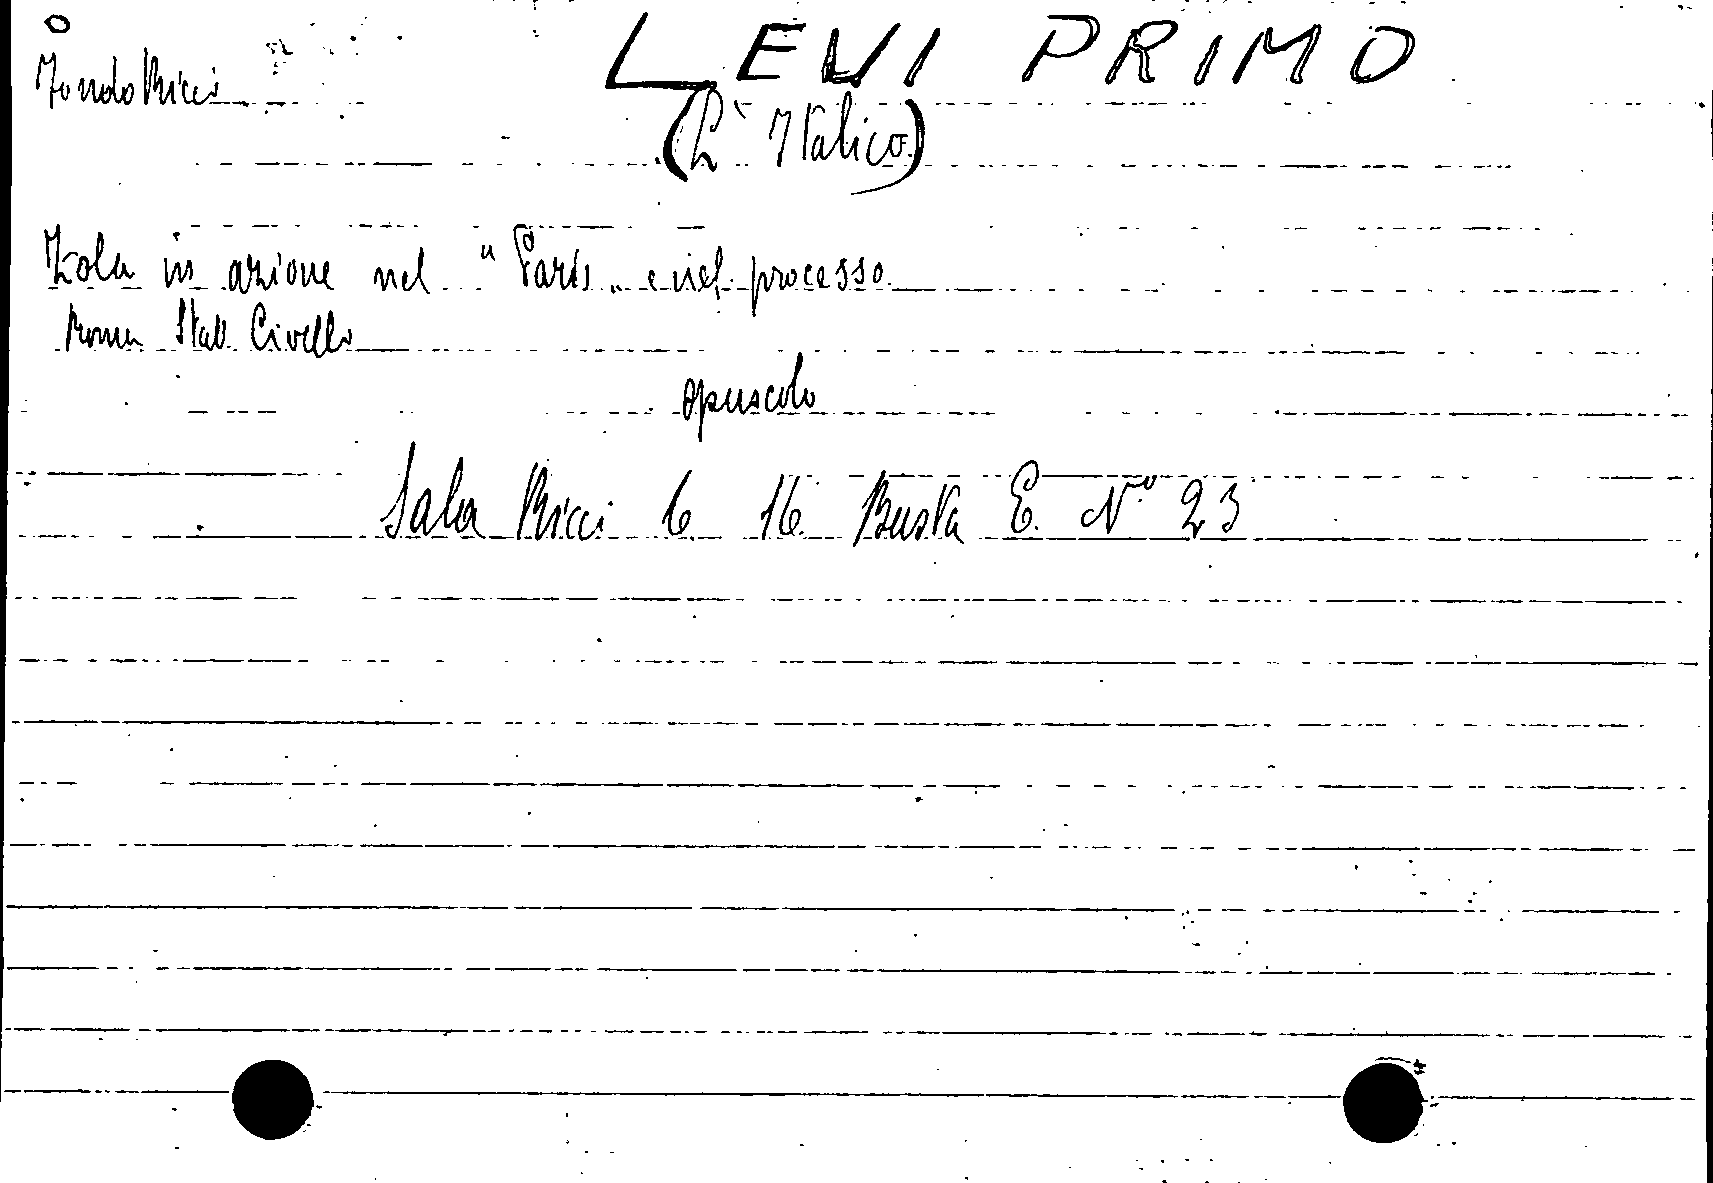 Fondo Ricci
LEVI PRIMO
(L'Italico)
Zola in azione nel "Paris" e nel processo
Roma Stab Civelli
opuscolo
Sala Ricci 6 16 Busta E. N.° 23